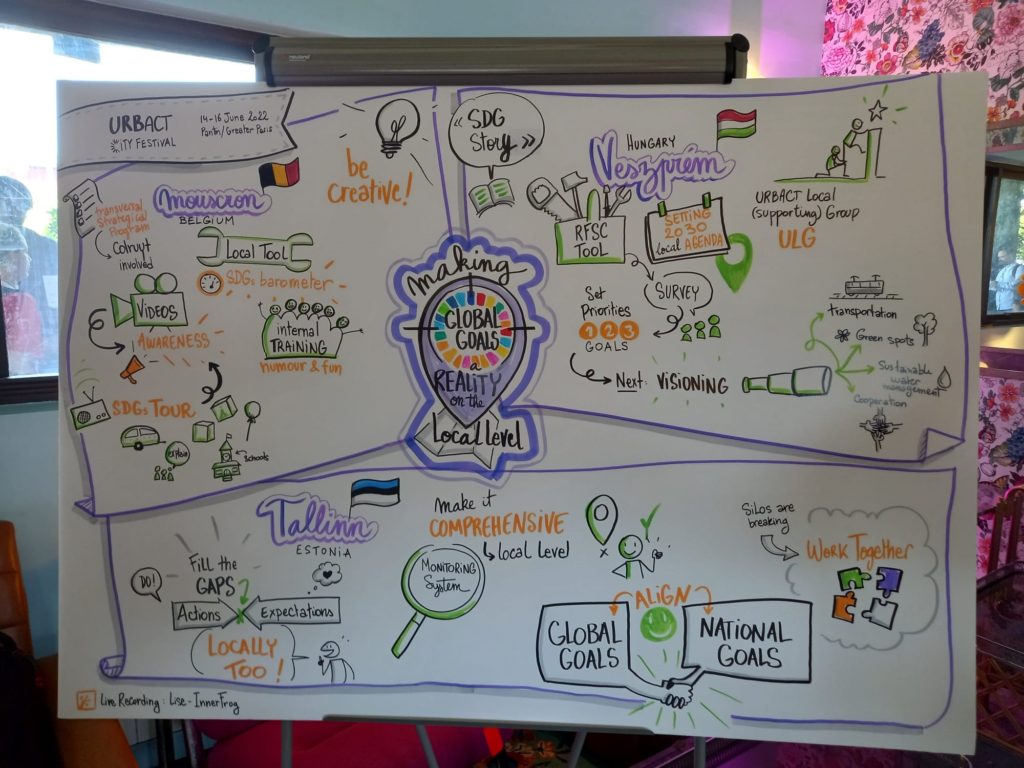 URBACT
CITY FESTIVAL
14-16 June 2022
Pantin/Greater Paris
be
creative!
mouscron
BELGIUM
transversal
Strategical
Program
Colruyt
involved
Local Tool
SDGs barometer
VIDEOS
AWARENESS
internal
TRAINING
humour & fun
SDGs TOUR
explain
schools
making
GLOBAL
GOALS
a
REALITY
on the
Local Level
« SDG
Story »
HUNGARY
Veszprém
RFSC
TOOL
SETTING
2030
Local AGENDA
URBACT Local
(supporting) Group
ULG
SURVEY
Set
Priorities
1 2 3
GOALS
Next: VISIONING
Transportation
Green spots
Sustainable
water
management
Cooperation
Tallinn
ESTONIA
Fill the
GAPS
DO!
Actions
Expectations
LOCALLY
TOO!
make it
COMPREHENSIVE
Local Level
MONITORING
System
ALIGN
GLOBAL
GOALS
NATIONAL
GOALS
Silos are
breaking
Work Together
Live Recording: Lise - InnerFrog